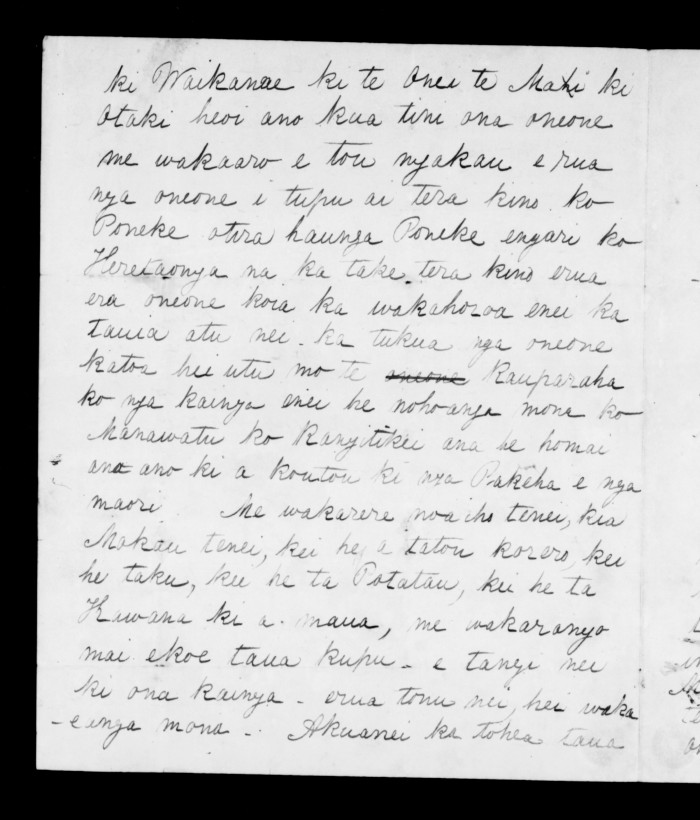 ki Waikanae ki te Onei te Mahi ki
Otaki heoi ano kua tini ona oneone
me wakaaro e tou ngakau e rua
nga oneone i tupu ai tera kino ko
Poneke otira haunga Poneke engari ko
Heretaonga na ka take tera kino erua
era oneone koia ka wakahoroa enei ka
tauia atu nei. ka tukua nga oneone
katoa hei utu mo te oneone Rauparaha
ko nga kainga enei he nohoanga mona ko
Manawatu ko Rangitikei ana he homai
ana ano ki a koutou ki nga Pakeha e nga
maori Me wakarere noa iho tenei, kia
Mokau tenei, kei he a tatou korero, kei
he taku, kei he ta Potatau, kei he ta
Kawana ki a maua, me wakarongo
mai ekoe taua kupu - e tangi nei
ki ona kainga - erua tonu nei, hei waka
-eanga mona -. Akuanei ka tohea taua